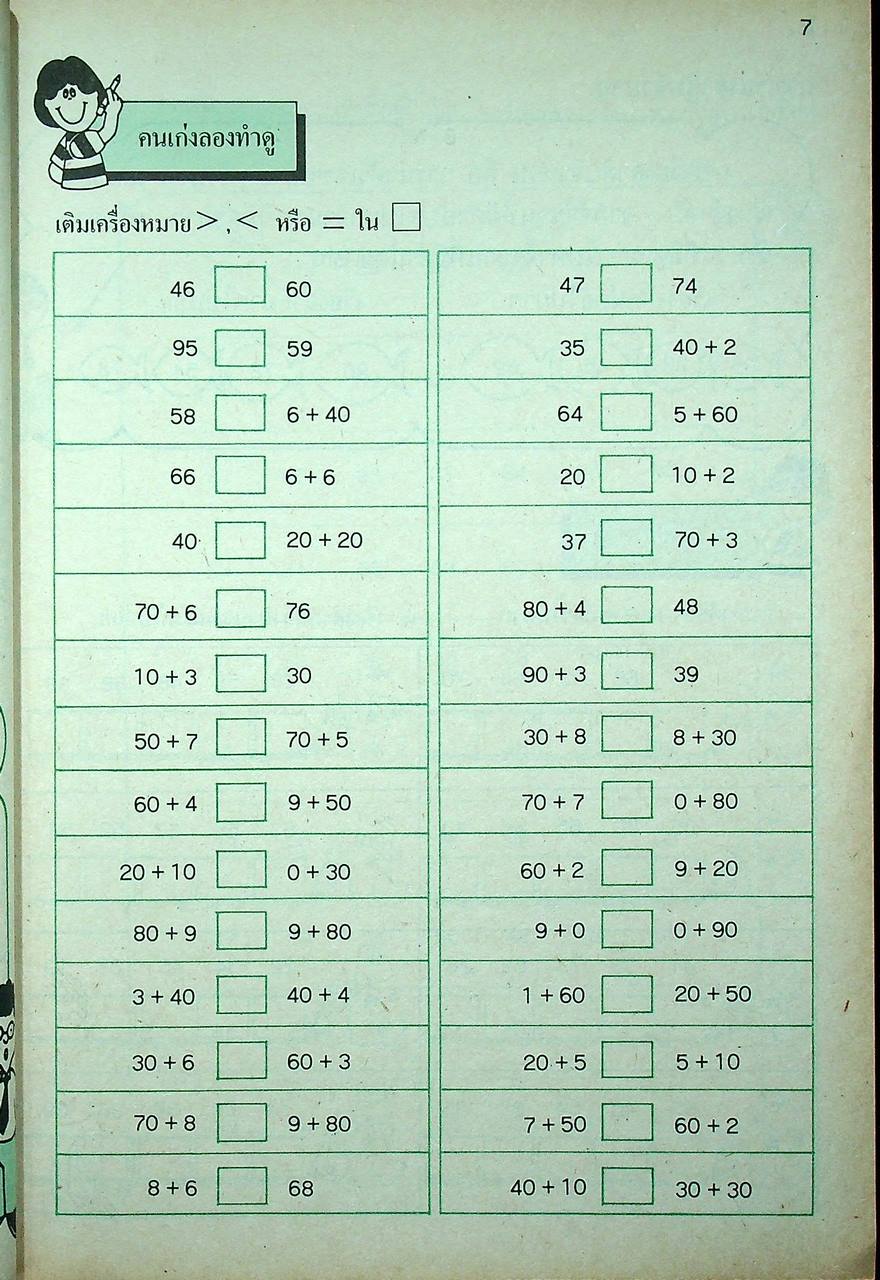 7
คนเก่งลองทำดู
เติมเครื่องหมาย > , < หรือ = ใน □
46 □ 60
95 □ 59
58 □ 6 + 40
66 □ 6 + 6
40 □ 20 + 20
70 + 6 □ 76
10 + 3 □ 30
50 + 7 □ 70 + 5
60 + 4 □ 9 + 50
20 + 10 □ 0 + 30
80 + 9 □ 9 + 80
3 + 40 □ 40 + 4
30 + 6 □ 60 + 3
70 + 8 □ 9 + 80
8 + 6 □ 68
47 □ 74
35 □ 40 + 2
64 □ 5 + 60
20 □ 10 + 2
37 □ 70 + 3
80 + 4 □ 48
90 + 3 □ 39
30 + 8 □ 8 + 30
70 + 7 □ 0 + 80
60 + 2 □ 9 + 20
9 + 0 □ 0 + 90
1 + 60 □ 20 + 50
20 + 5 □ 5 + 10
7 + 50 □ 60 + 2
40 + 10 □ 30 + 30